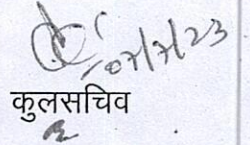 07/7/23
कुलसचिव